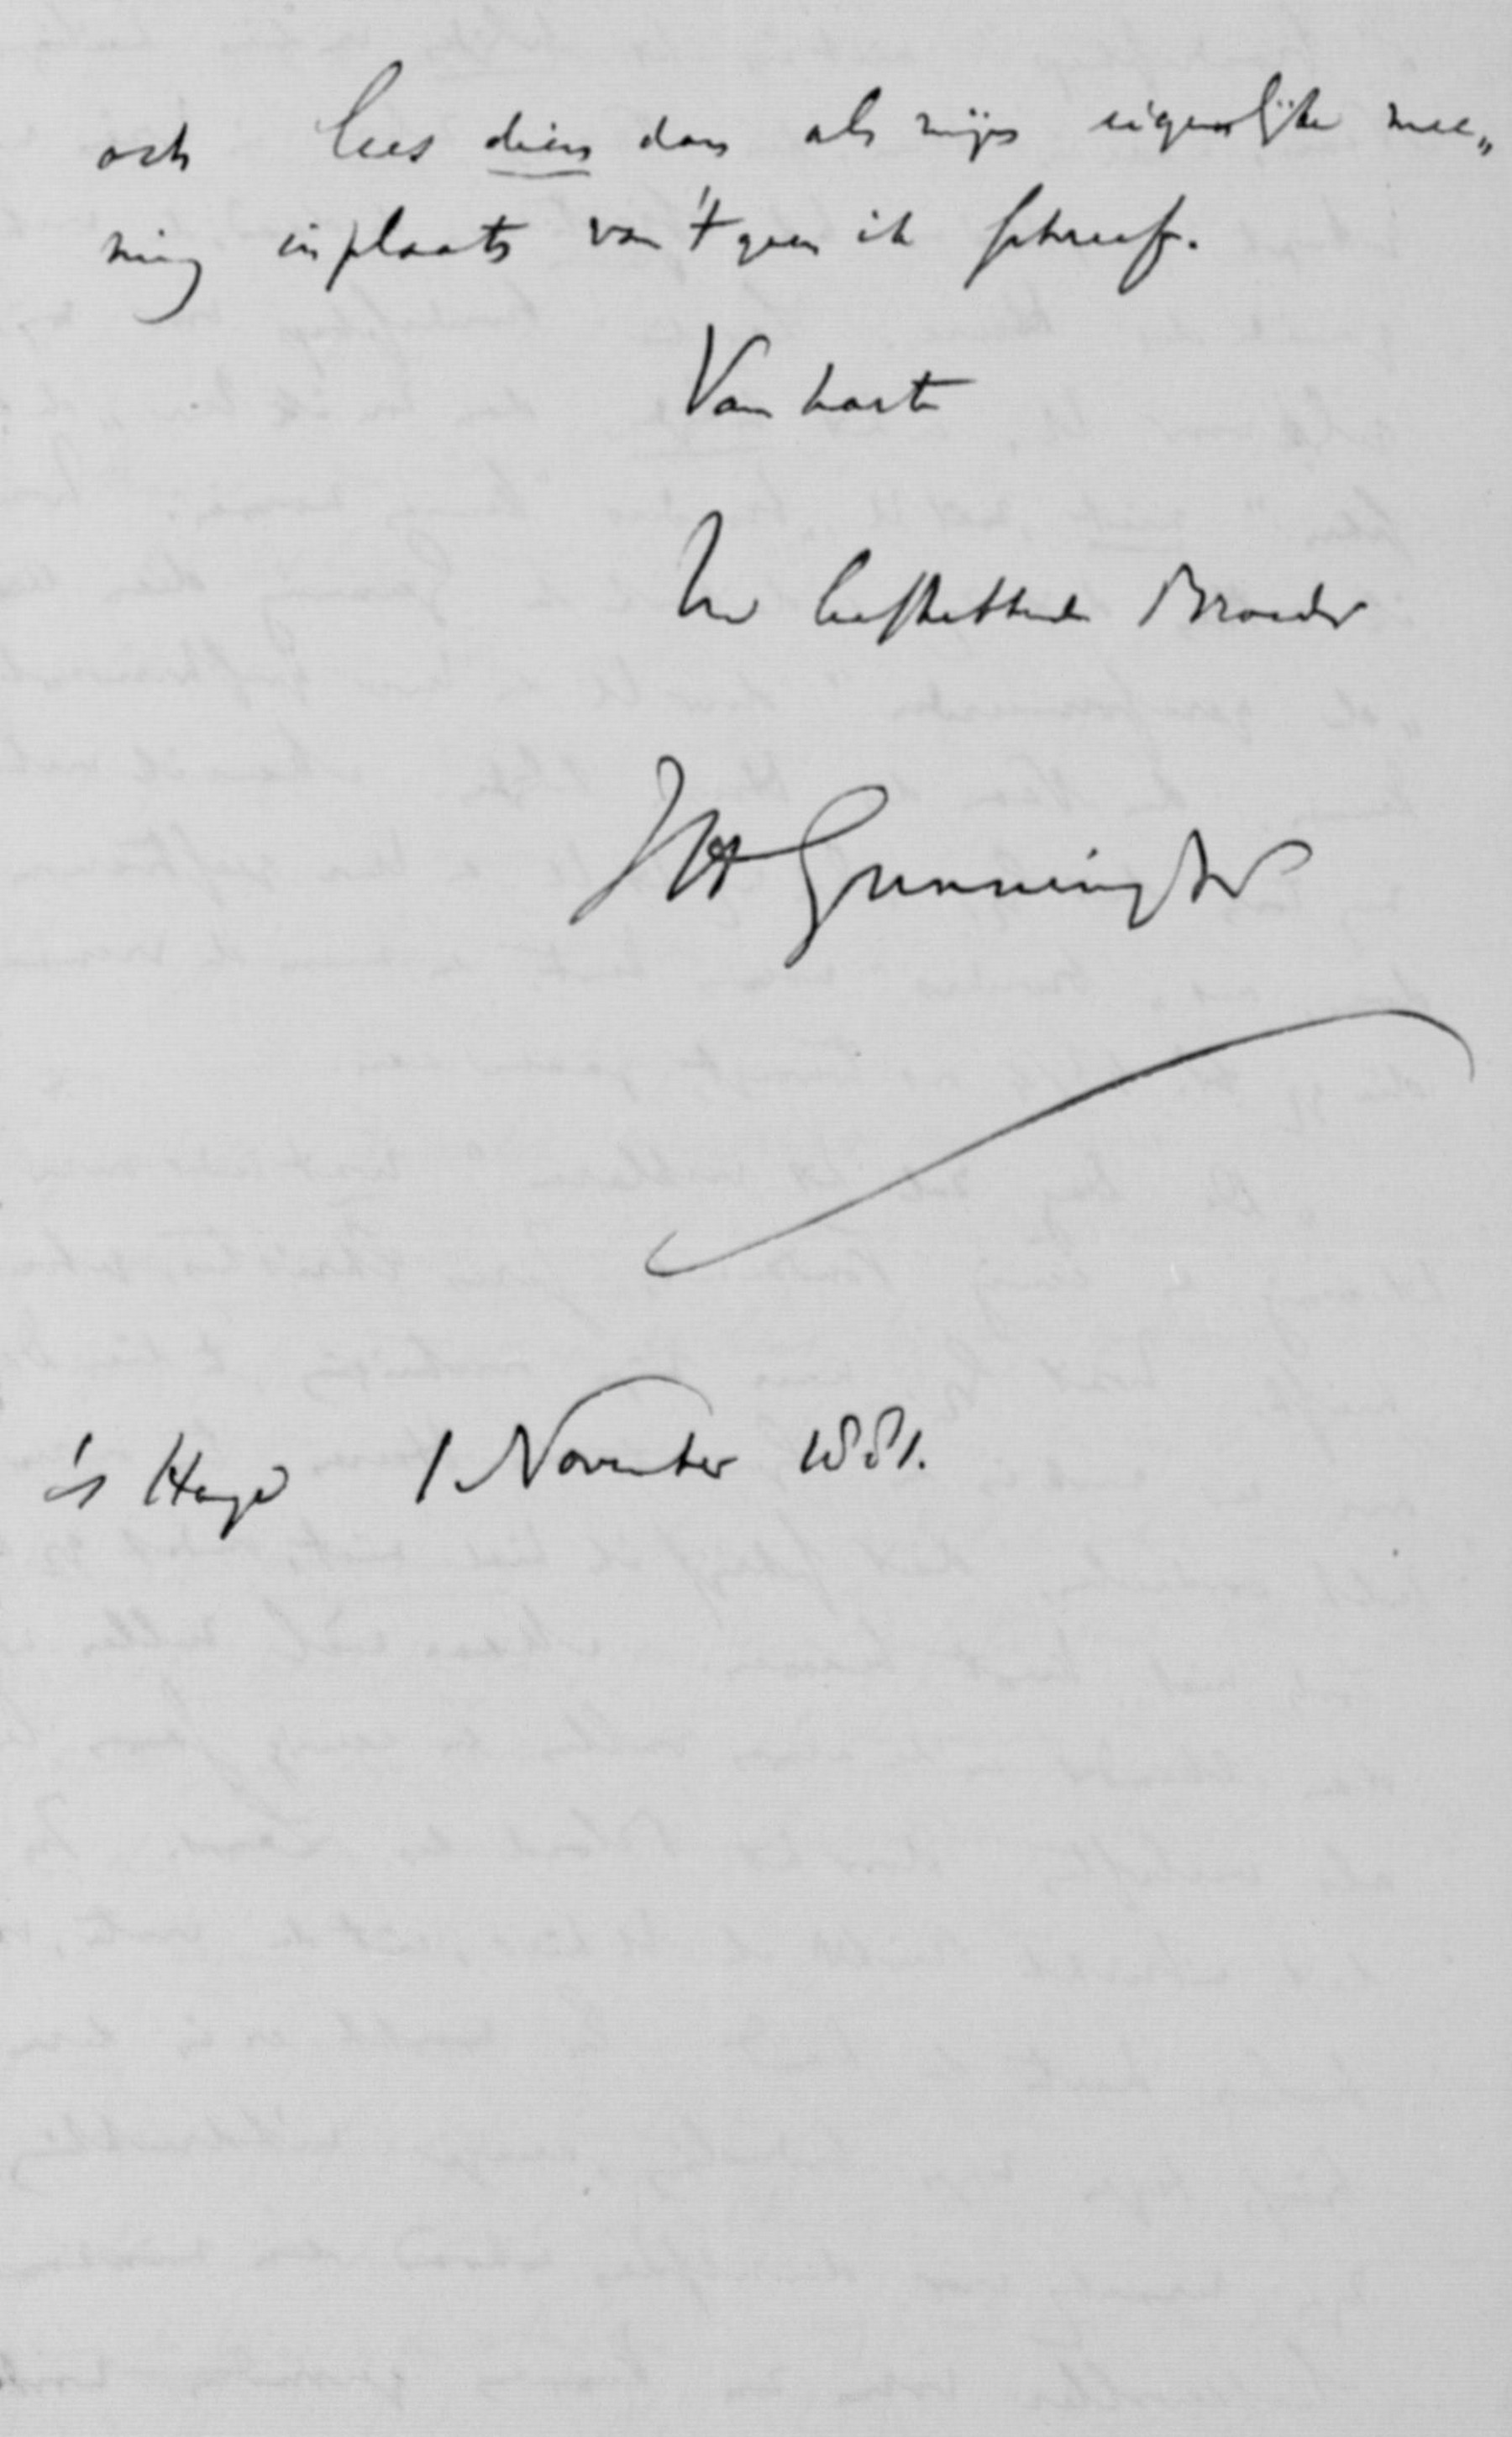 och lees dien dan als mijn eigenlijke mee„
ning in plaats van 't geen ik schreef.
Van harte
Uw liefhebbende Broeder
JH Gunning Jr
's Hage 1 November 1881.